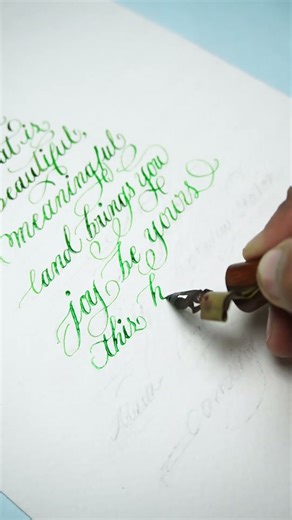 at is
beautiful,
meaningful
and brings you
joy be yours
this h